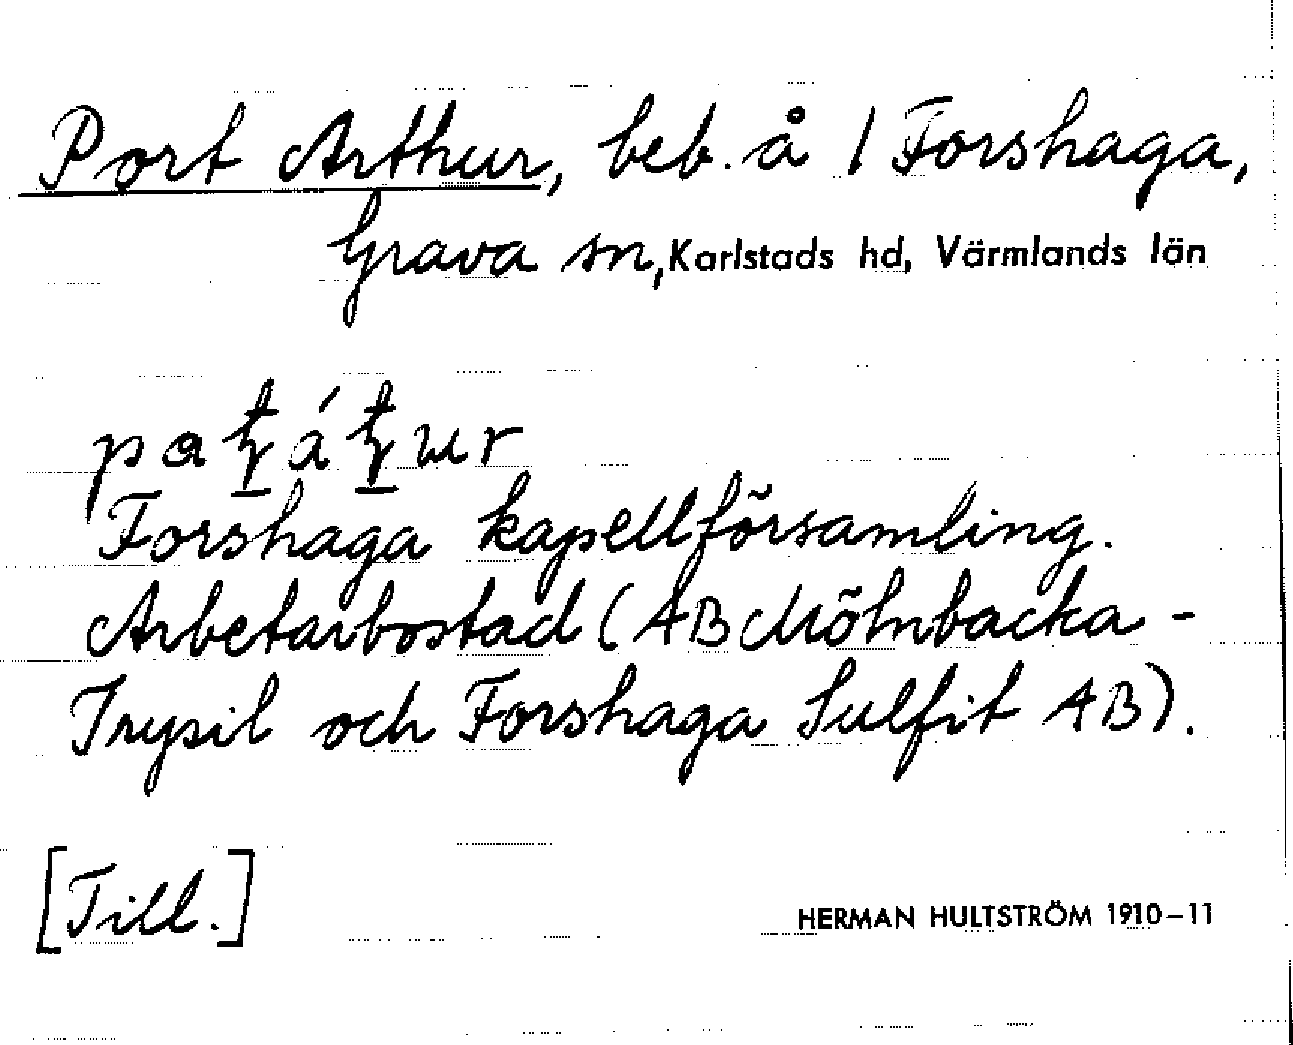 Port Arthur, beb. å / Forshaga,
Grava sn, Karlstads hd, Värmlands län
Forshaga kapellförsamling.
Arbetarbostad (AB Mölnbacka-
Trysil och Forshaga Sulfit AB).
[Till.]
HERMAN HULTSTRÖM 1910–11